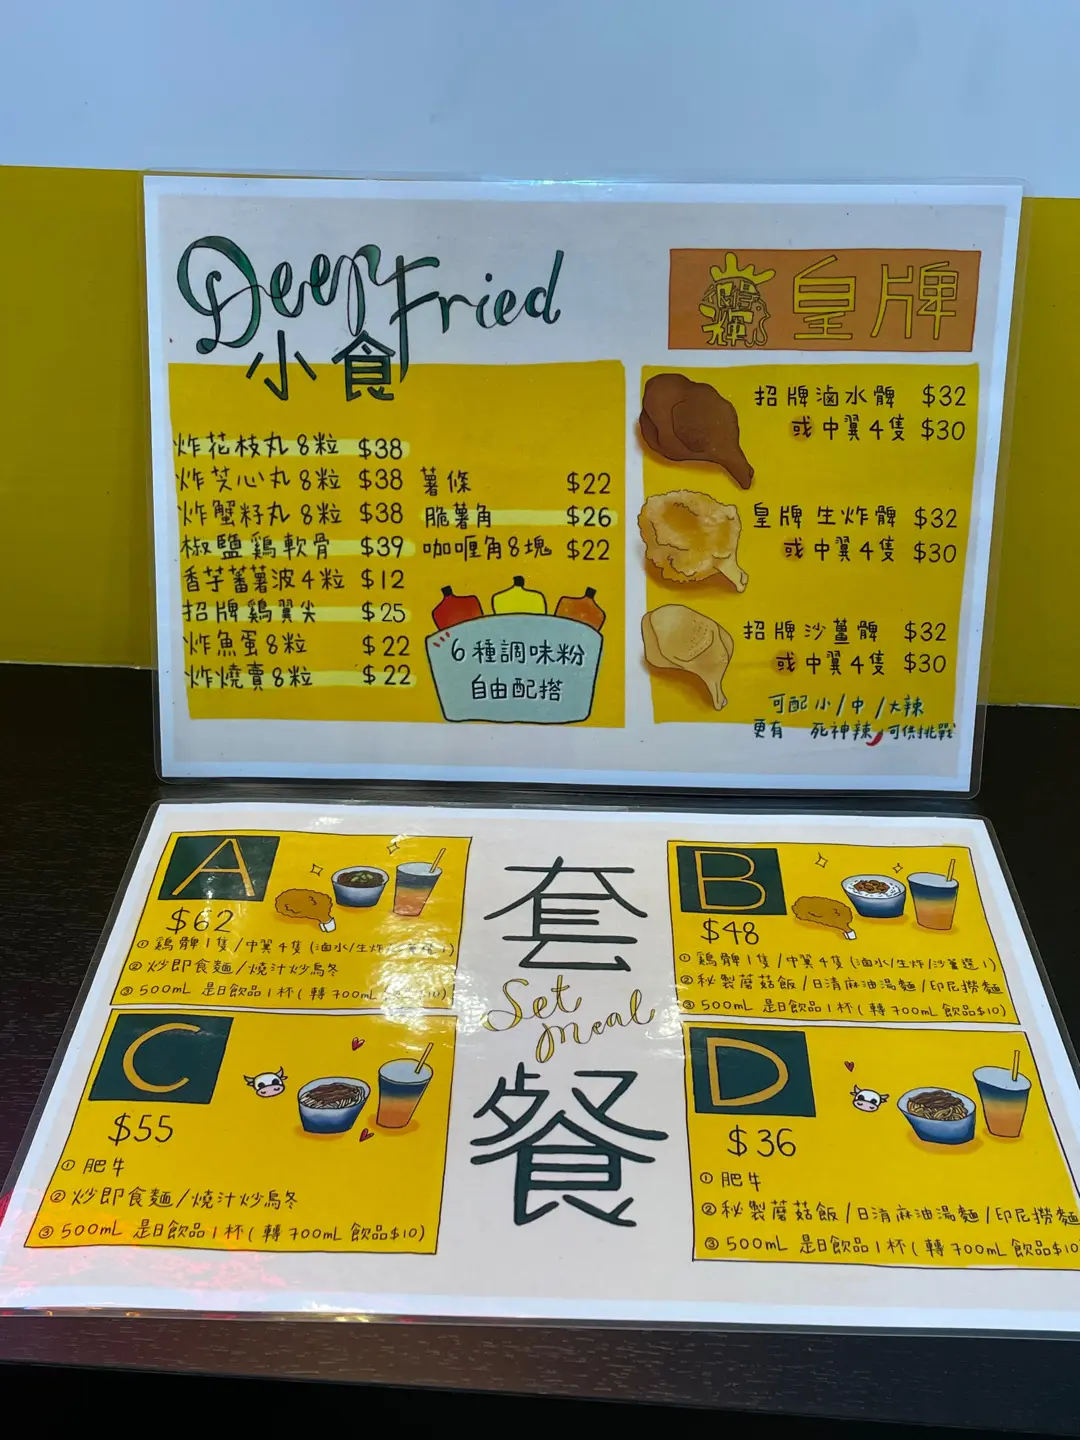 Deep Fried
小食
炸花枝丸8粒 $38
炸芝心丸8粒 $38
炸蟹籽丸8粒 $38
椒鹽鷄軟骨 $39
香芋蕃薯波4粒 $12
招牌鷄翼尖 $25
炸魚蛋8粒 $22
炸燒賣8粒 $22
薯條 $22
脆薯角 $26
咖喱角8塊 $22
6種調味粉
自由配搭
皇牌
招牌滷水髀 $32
或中翼4隻 $30
皇牌生炸髀 $32
或中翼4隻 $30
招牌沙薑髀 $32
或中翼4隻 $30
可配小/中/大辣
更有 死神辣 可供挑戰
套
Set Meal
餐
A
$62
① 鷄髀1隻/中翼4隻(滷水/生炸/
② 炒即食麵/燒汁炒烏冬
③ 500mL 是日飲品1杯(轉700mL $10)
B
$48
① 鷄髀1隻/中翼4隻(滷水/生炸/沙薑選1)
② 秘製蘑菇飯/日清麻油湯麵/印尼撈麵
③ 500mL 是日飲品1杯(轉700mL 飲品$10)
C
$55
① 肥牛
② 炒即食麵/燒汁炒烏冬
③ 500mL 是日飲品1杯(轉700mL 飲品$10)
D
$36
① 肥牛
② 秘製蘑菇飯/日清麻油湯麵/印尼撈麵
③ 500mL 是日飲品1杯(轉700mL 飲品$10